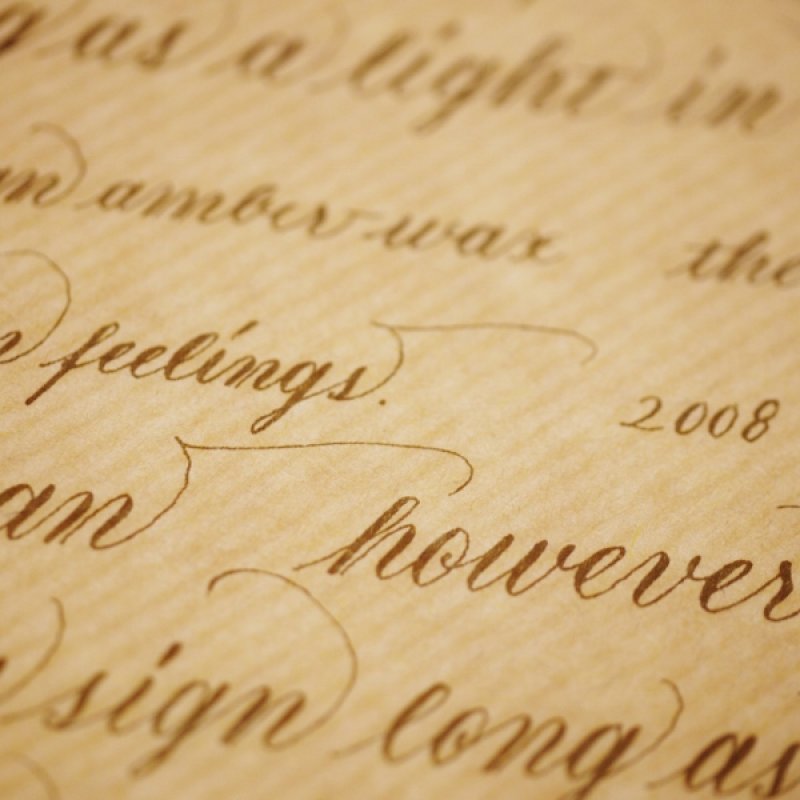 as a light in
amber wax the
feelings. 2008
an however
sign long as